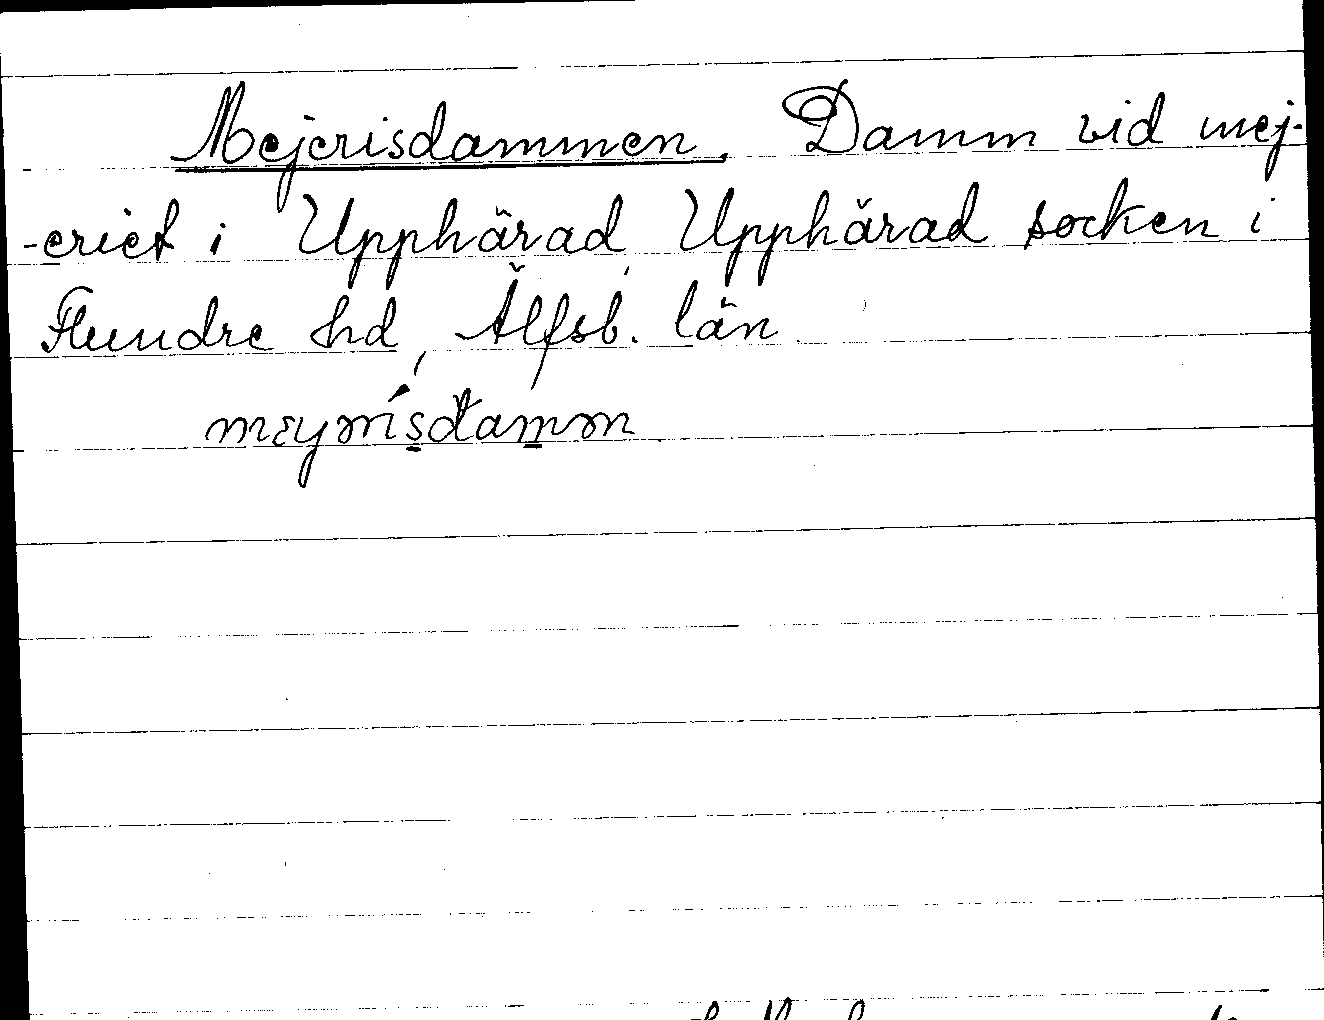 Mejerisdammen. Damm vid mej-
-eriet i Upphärad, Upphärad socken i
Flundre hd, Älfsb. län